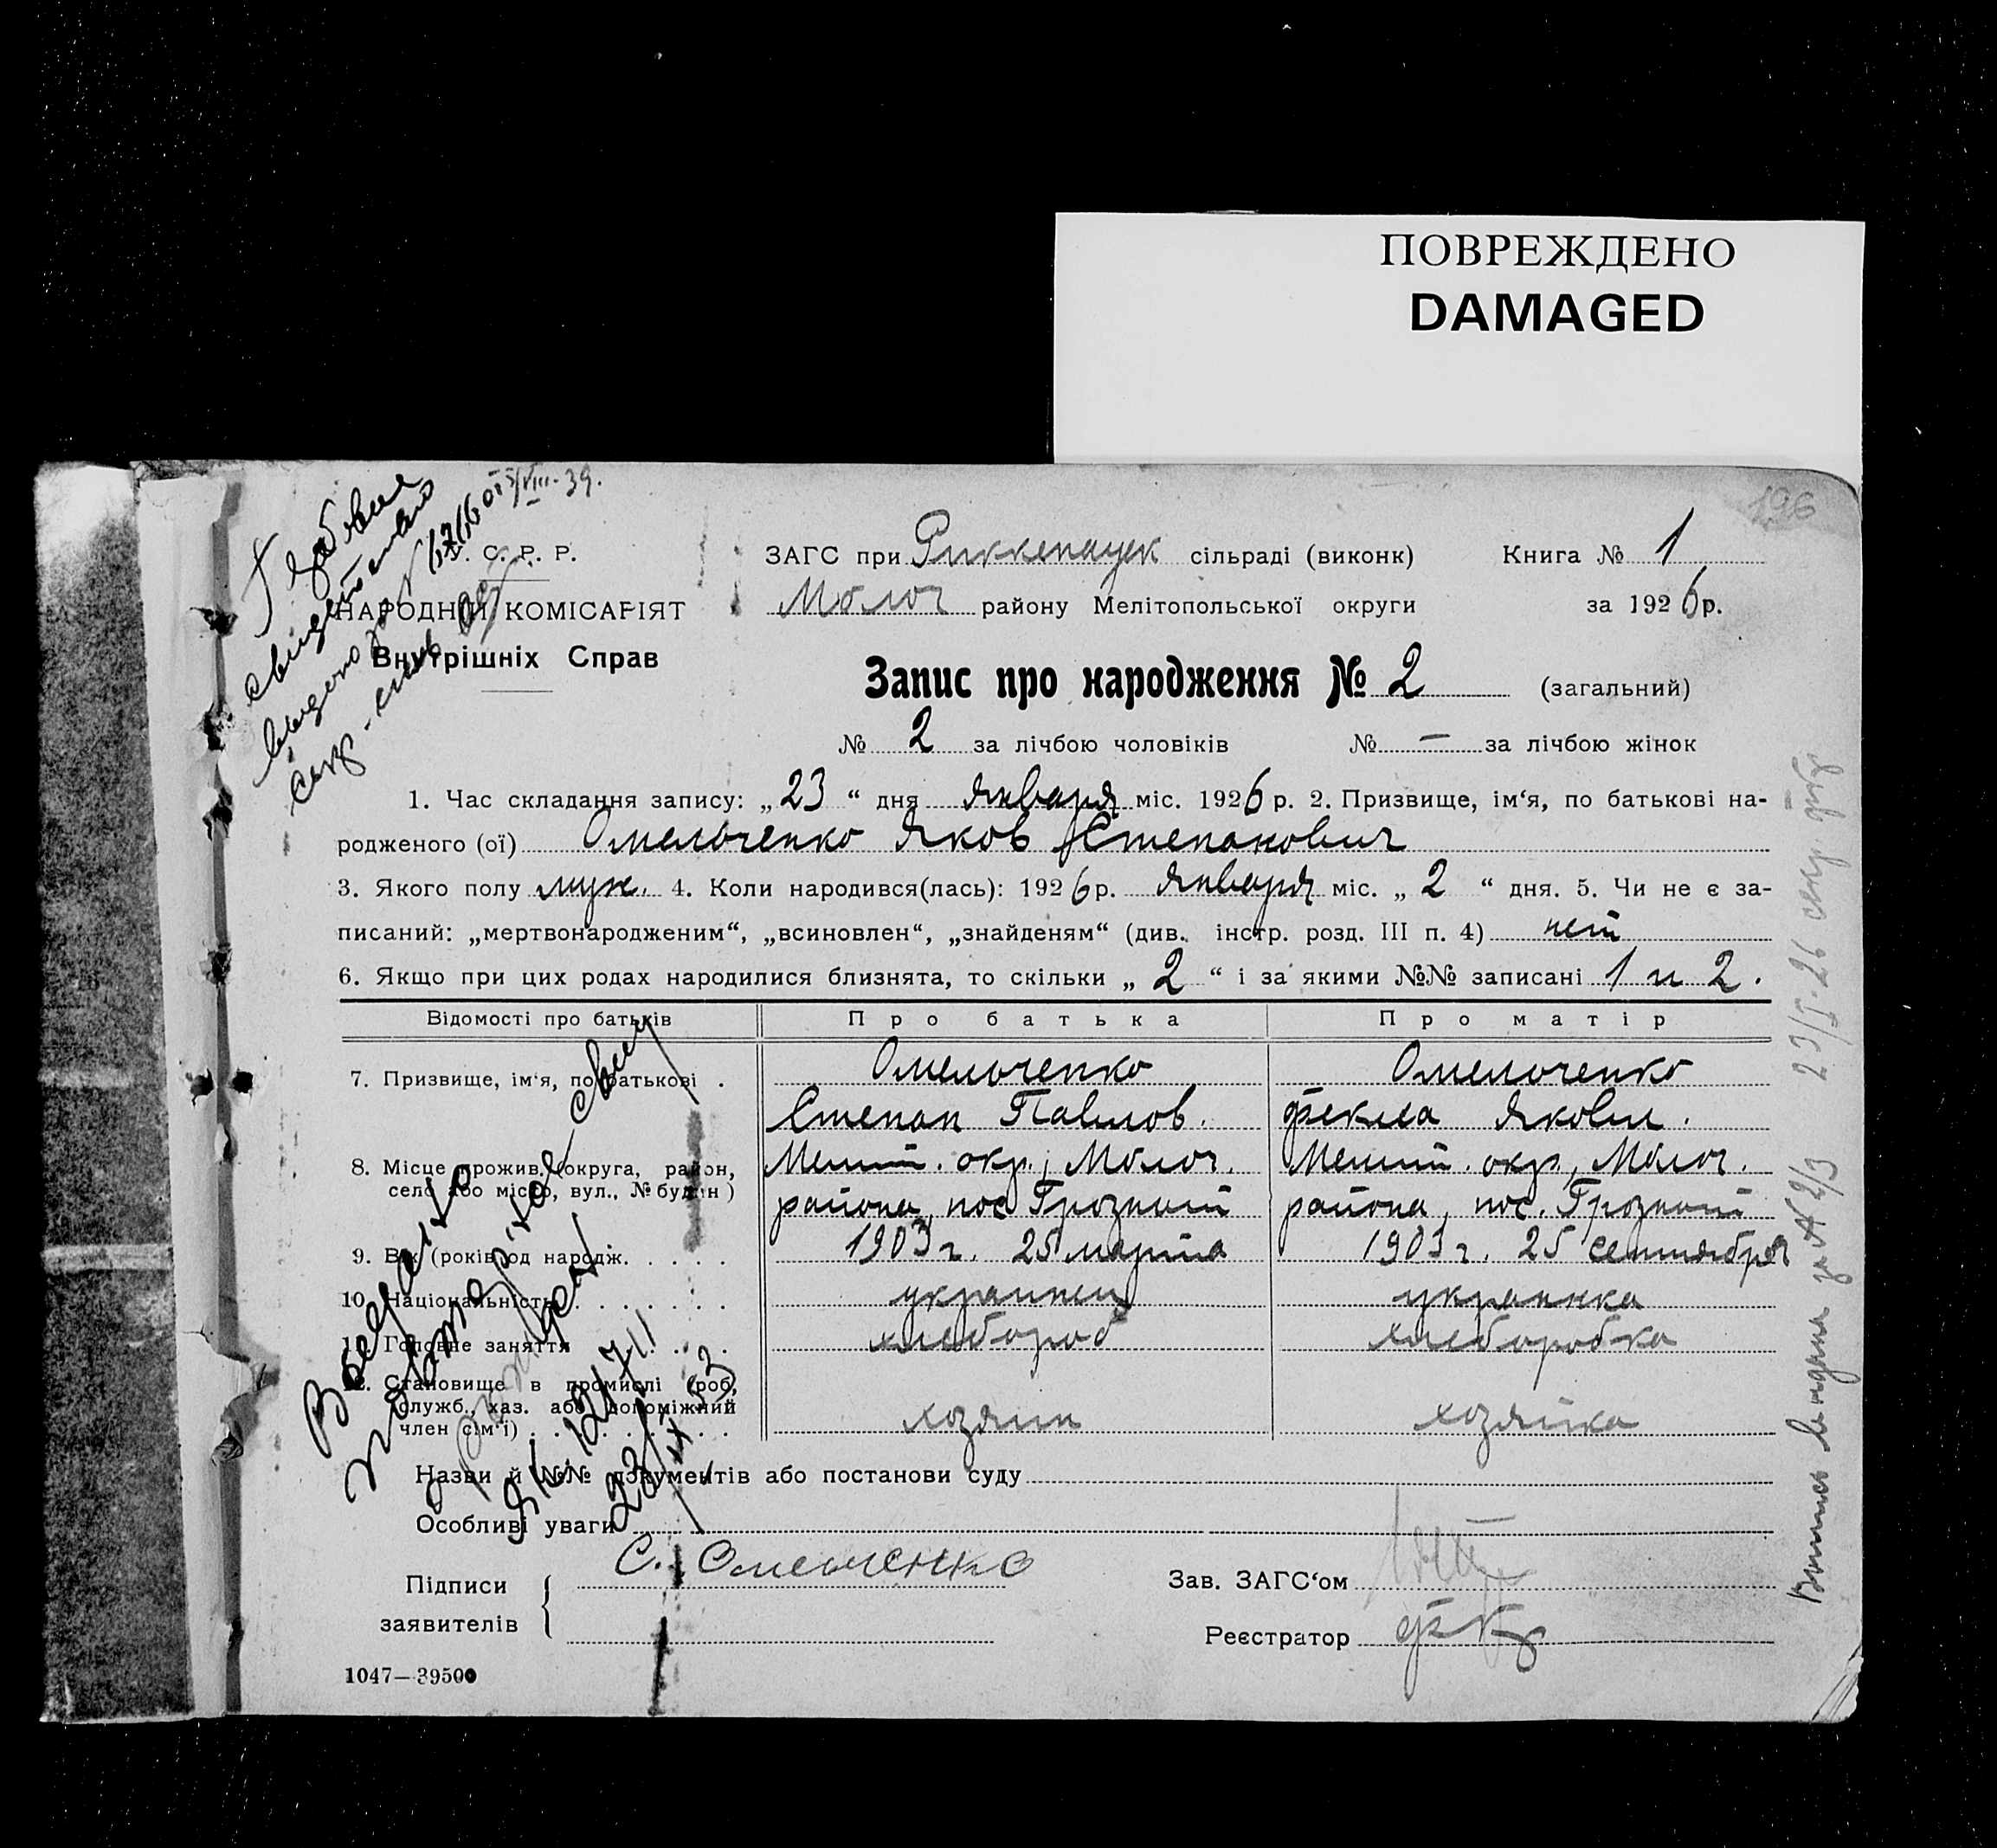 ПОВРЕЖДЕНО
DAMAGED
196
С. Р. Р.
НАРОДНИЙ КОМІСАРІЯТ
Внутрішніх Справ
ЗАГС при Риккенауск сільраді (виконк) Книга № 1
Молоч району Мелітопольської округи за 1926 р.
Запис про народження № 2 (загальний)
№ 2 за лічбою чоловіків № — за лічбою жінок
1. Час складання запису: „23“ дня января міс. 1926 р. 2. Призвище, ім‘я, по батькові на-
родженого (ої) Омельченко Яков Степанович
3. Якого полу муж. 4. Коли народився(лась): 1926 р. января міс. „2“ дня. 5. Чи не є за-
писаний: „мертвонародженим“, „всиновлен“, „знайденям“ (див. інстр. розд. III п. 4) нет
6. Якщо при цих родах народилися близнята, то скільки „2“ і за якими №№ записані 1 и 2.
Відомості про батьків Про батька Про матір
7. Призвище, ім‘я, по батькові . Омельченко Омельченко
Степан Павлов. Фекла Яковл.
8. Місце прожив. (округа, район, Мелит. окр., Молоч. Мелит. окр., Молоч.
село або місто, вул., № будин) района, пос. Грозный района, пос. Грозный
9. Вік (років од народж. 1903 г. 25 марта 1903 г. 25 сентября
10. Національність украинец украинка
11. Головне заняття хлебороб хлеборобка
12. Становище в промислі (роб,
служб., хаз. або допоміжний
член сім‘ї) хозяин хозяйка
Назви й №№ документів або постанови суду
Особливі уваги
Підписи С. Омельченко Зав. ЗАГС‘ом
заявителів Реєстратор
1047—39500
свидетельство
Выпись выдана за № 2/3 23/I-26 секр.